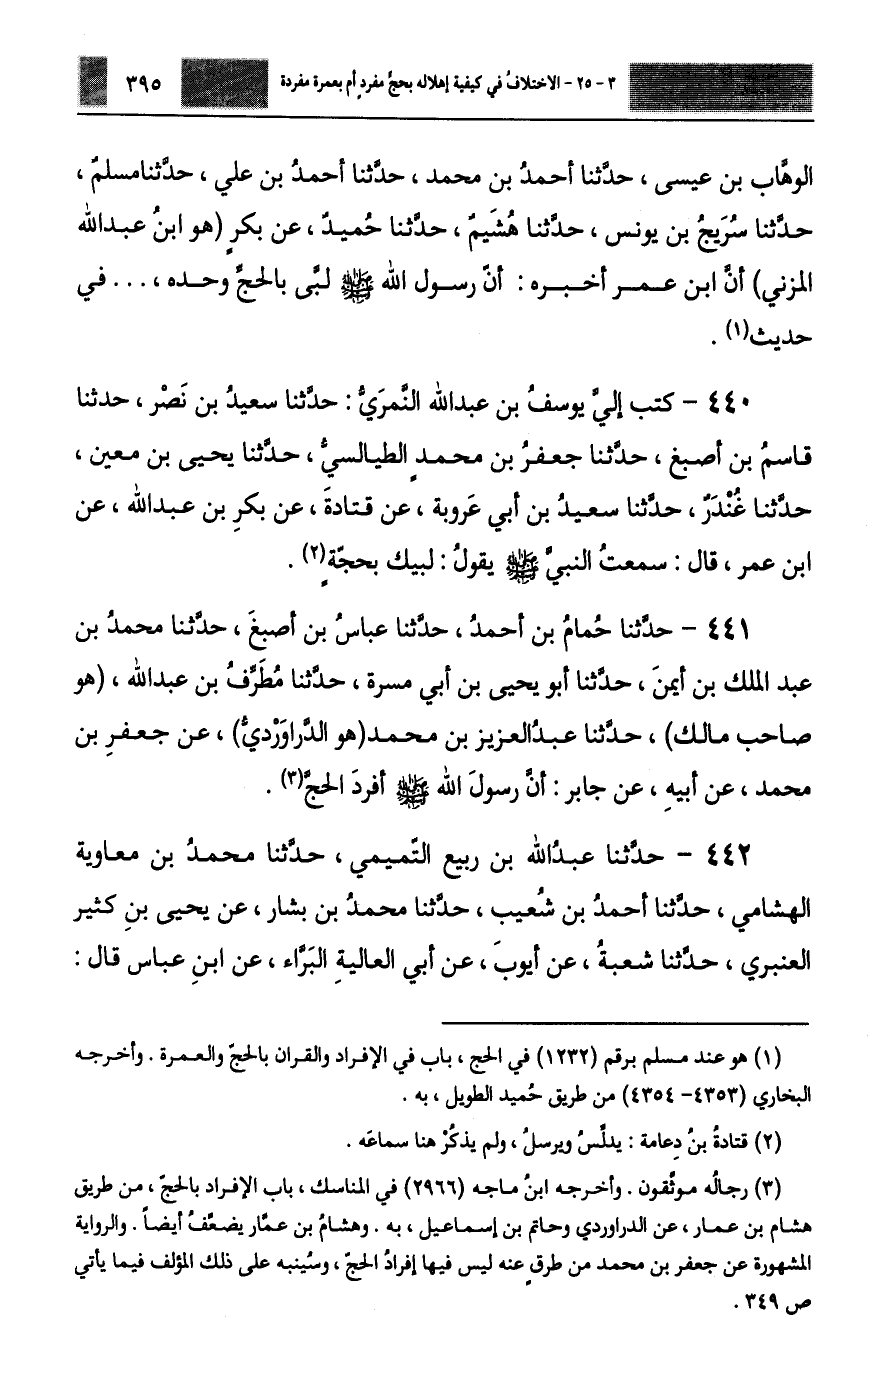 ٣ - ٢٥ - الاختلافُ في كيفية إهلاله بحجٍّ مفردٍ أم بعمرة مفردة ٣٩٥
الوهَّاب بن عيسى ، حدَّثنا أحمدُ بن محمد ، حدَّثنا أحمدُ بن علي ، حدَّثنامسلمٌ ،
حدَّثنا سُرَيجُ بن يونس ، حدَّثنا هُشَيمٌ ، حدَّثنا حُميدٌ ، عن بكرٍ (هو ابنُ عبدالله
المزني) أنَّ ابن عمر أخبره : أنّ رسول الله ﷺ لبَّى بالحجِّ وحده ، ... في
حديث(١) .
٤٤٠ - كتب إليَّ يوسفُ بن عبدالله النَّمرَيُّ : حدَّثنا سعيدُ بن نَصْر ، حدثنا
قاسمُ بن أصبغ ، حدَّثنا جعفرُ بن محمدٍ الطيالسيُّ ، حدَّثنا يحيى بن معين ،
حدَّثنا غُنْدَرٌ ، حدَّثنا سعيدُ بن أبي عَروبة ، عن قتادةَ ، عن بكرِ بن عبدالله ، عن
ابن عمر ، قال : سمعتُ النبيَّ ﷺ يقولُ : لبيك بحجّةٍ(٢) .
٤٤١ - حدَّثنا حُمامُ بن أحمدُ ، حدَّثنا عباسُ بن أصبغَ ، حدَّثنا محمدُ بن
عبد الملك بن أيمنَ ، حدَّثنا أبو يحيى بن أبي مسرة ، حدَّثنا مُطَرِّفُ بن عبدالله ، (هو
صاحب مالك) ، حدَّثنا عبدُالعزيز بن محمد(هو الدَّراوَرْديُّ) ، عن جعفرِ بن
محمد ، عن أبيهِ ، عن جابر : أنَّ رسولَ الله ﷺ أفردَ الحجَّ(٣) .
٤٤٢ - حدَّثنا عبدُالله بن ربيع التَّميمي ، حدَّثنا محمدُ بن معاوية
الهشامي ، حدَّثنا أحمدُ بن شُعيب ، حدَّثنا محمدُ بن بشار ، عن يحيى بنِ كثير
العنبري ، حدَّثنا شعبةُ ، عن أيوبَ ، عن أبي العاليةِ البَرَّاء ، عن ابنِ عباس قال :
(١) هو عند مسلم برقم (١٢٣٢) في الحج ، باب في الإفراد والقران بالحجّ والعمرة . وأخرجه
البخاري (٤٣٥٣- ٤٣٥٤) من طريق حُميد الطويل ، به .
(٢) قتادةُ بنُ دِعامة : يدلِّسُ ويرسلُ ، ولم يذكُرْ هنا سماعَه .
(٣) رجالُه موثَّقون . وأخرجه ابنُ ماجه (٢٩٦٦) في المناسك ، باب الإفراد بالحجّ ، من طريق
هشام بن عمار ، عن الدراوردي وحاتم بن إسماعيل ، به . وهشامُ بن عمَّار يضعَّفُ أيضاً . والرواية
المشهورة عن جعفر بن محمد من طرقٍ عنه ليس فيها إفرادُ الحجّ ، وسيُنبه على ذلك المؤلف فيما يأتي
ص ٣٤٩ .